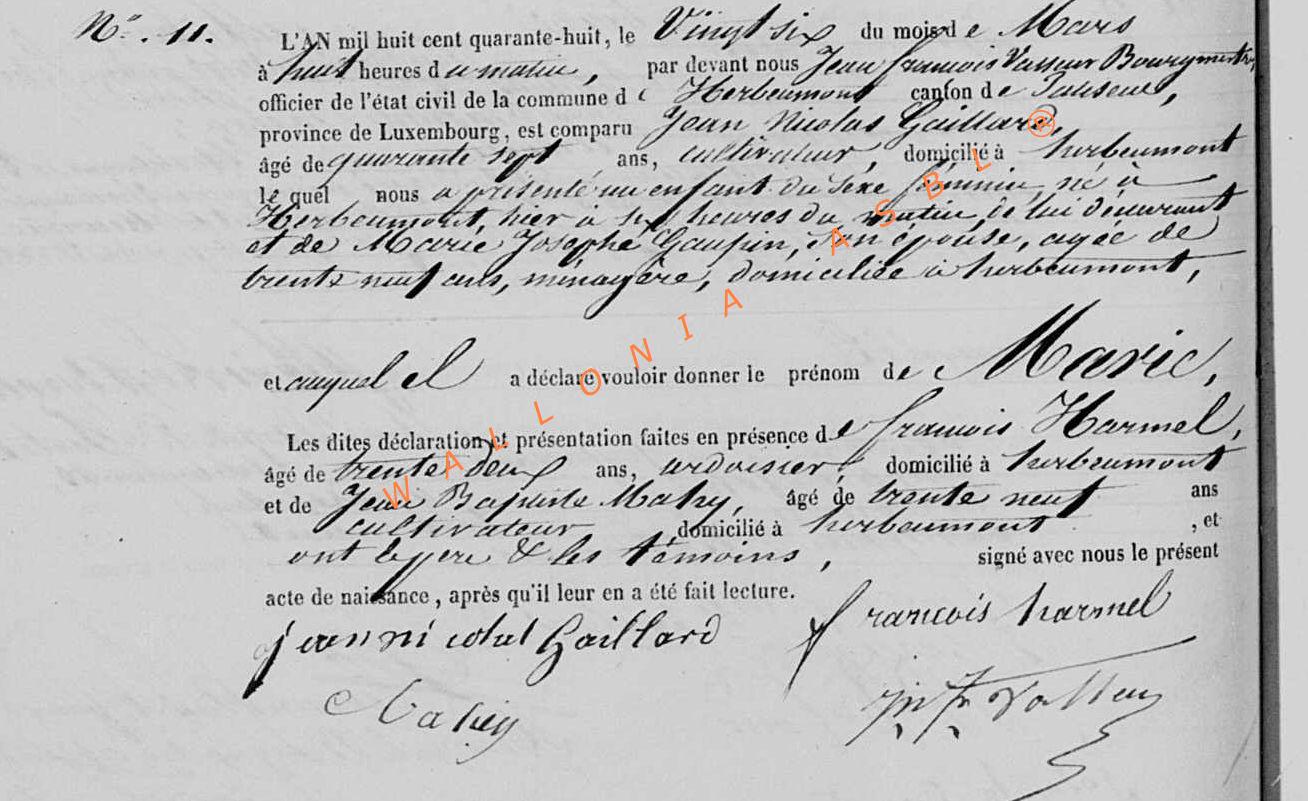 N°. 11.
L'AN mil huit cent quarante-huit, le Vingt six du mois de Mars
à huit heures du matin, par devant nous Jean françois Vasseur Bourgmestre,
officier de l'état civil de la commune de Herbeumont canton de Paliseul,
province de Luxembourg, est comparu Jean Nicolas Gaillard
âgé de quarante sept ans, cultivateur, domicilié à herbeumont
le quel nous a présenté un enfant du Sexe féminin, né à
Herbeumont, hier à six heures du matin, de lui déclarant
et de Marie Josephe Gaupin, son épouse, agée de
trente neuf ans, ménagère, domiciliée à herbeumont,
et auquel il a déclaré vouloir donner le prénom de Marie,
Les dites déclaration et présentation faites en présence de françois Harmel,
âgé de trente deux ans, ardoisier, domicilié à herbeumont
et de Jean Baptiste Mahy, âgé de trente neuf ans
cultivateur domicilié à herbeumont , et
ont le pere & les témoins, signé avec nous le présent
acte de naissance, après qu'il leur en a été fait lecture.
jean nicolas Gaillard françois harmel
Mahy Vasseur
WALLONIA ASBL ®